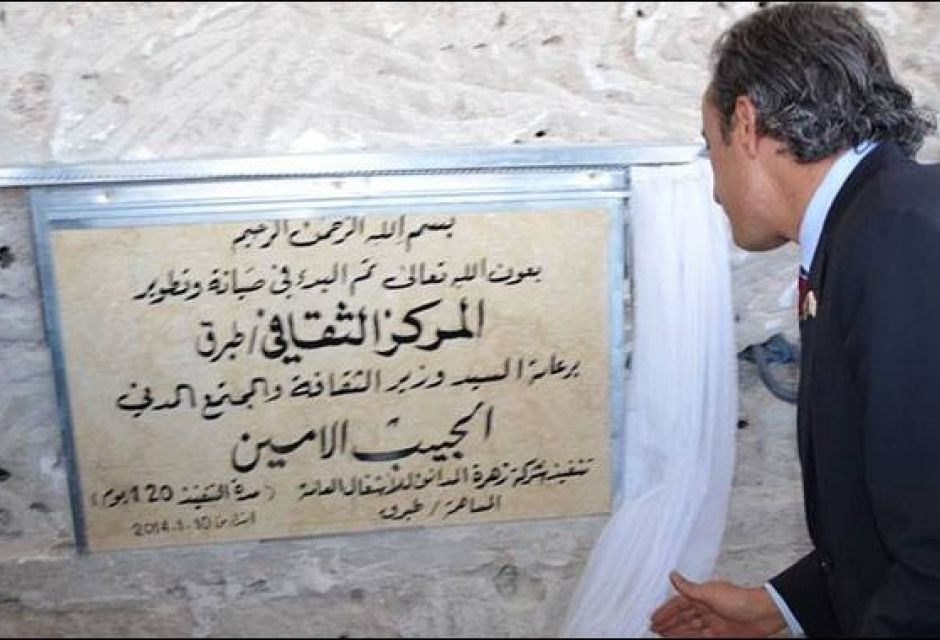 بسم الله الرحمن الرحيم
بعون الله تعالى تم البدء في صيانة وتطوير
المركز الثقافي / طبرق
برعاية السيد وزير الثقافة والمجتمع المدني
الحبيب الامين
تنفيذ شركة زهرة المدائن للأشغال العامة (مدة التنفيذ 120 يوم)
المساهمة / طبرق
ابتداء من 10-1-2014